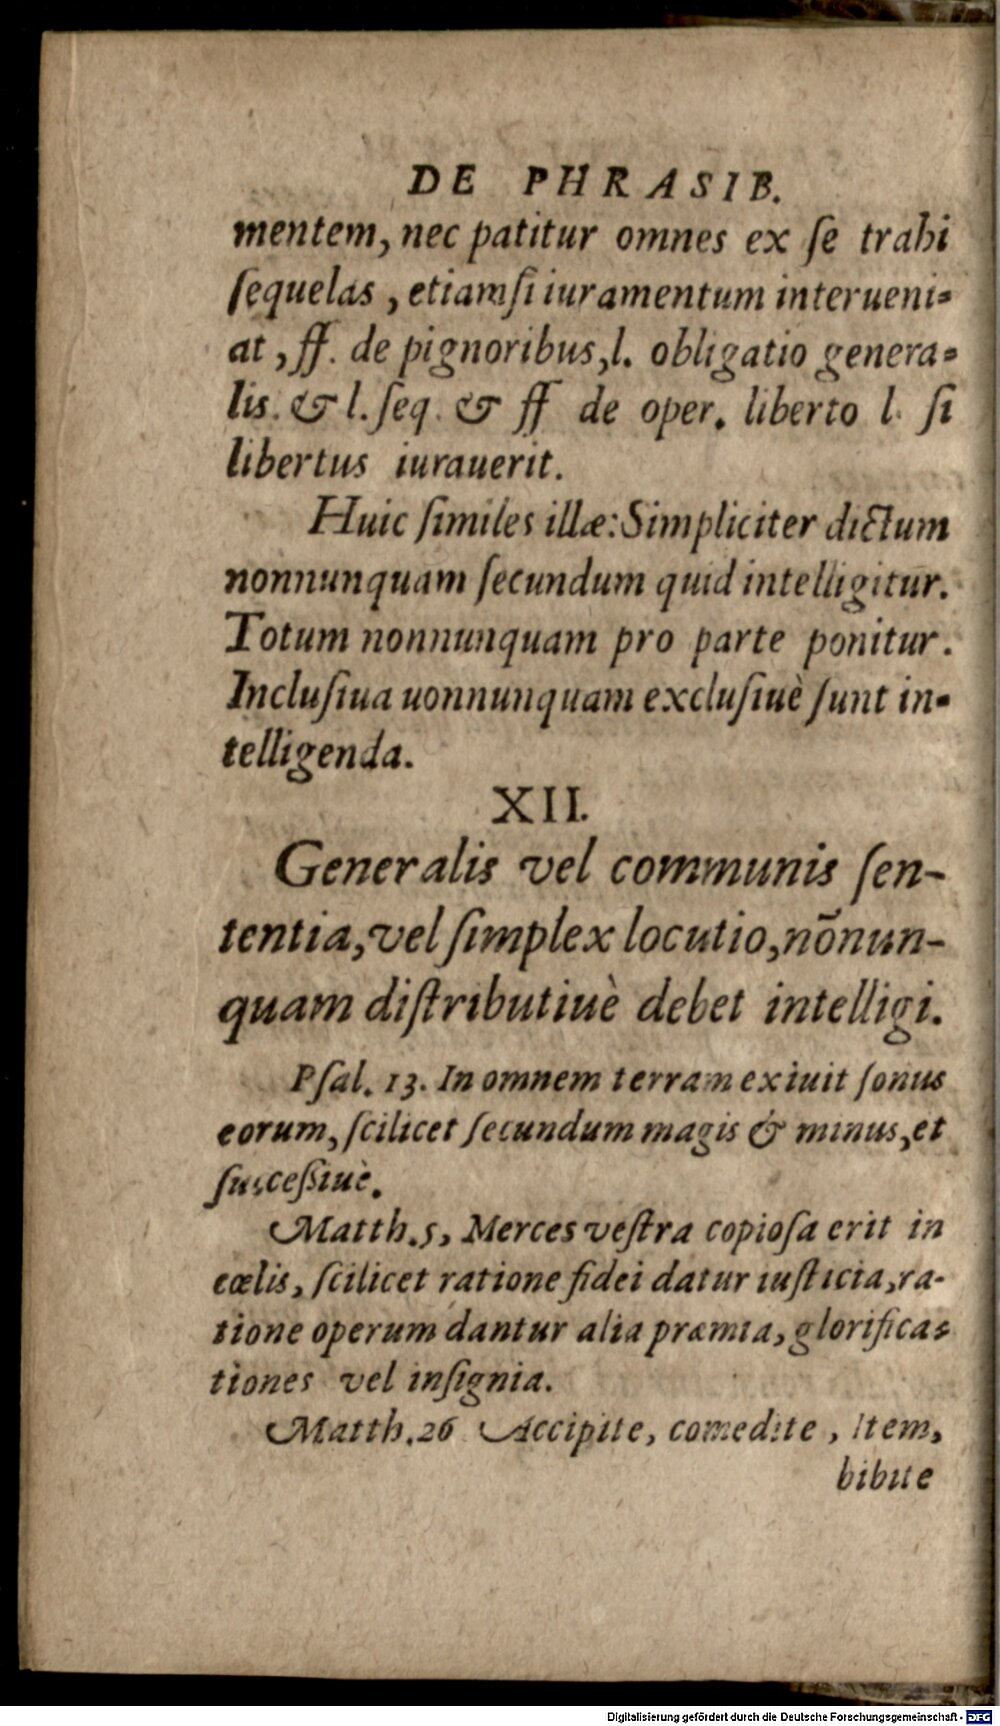 DE PHRASIB.
mentem, nec patitur omnes ex ſe trahi
ſequelas , etiamſi iuramentum interueni-
at , ff. de pignoribus, l. obligatio genera-
lis. & l. ſeq. & ff de oper. liberto l. ſi
libertus iurauerit.
Huic ſimiles illæ: Simpliciter dictum
nonnunquam ſecundum quid intelligitur.
Totum nonnunquam pro parte ponitur.
Incluſiua uonnunquam excluſiuè ſunt in-
telligenda.
XII.
Generalis vel communis ſen-
tentia, vel ſimplex locutio, nõnun-
quam diſtributiuè debet intelligi.
Pſal. 13. In omnem terram exiuit ſonus
eorum, ſcilicet ſecundum magis & minus, et
ſucceſsiuè.
Matth. 5, Merces veſtra copioſa erit in
cœlis, ſcilicet ratione fidei datur iuſticia, ra-
tione operum dantur alia præmia, glorifica-
tiones vel inſignia.
Matth. 26 Accipite, comedite , Item,
bibite
Digitalisierung gefördert durch die Deutsche Forschungsgemeinschaft - DFG